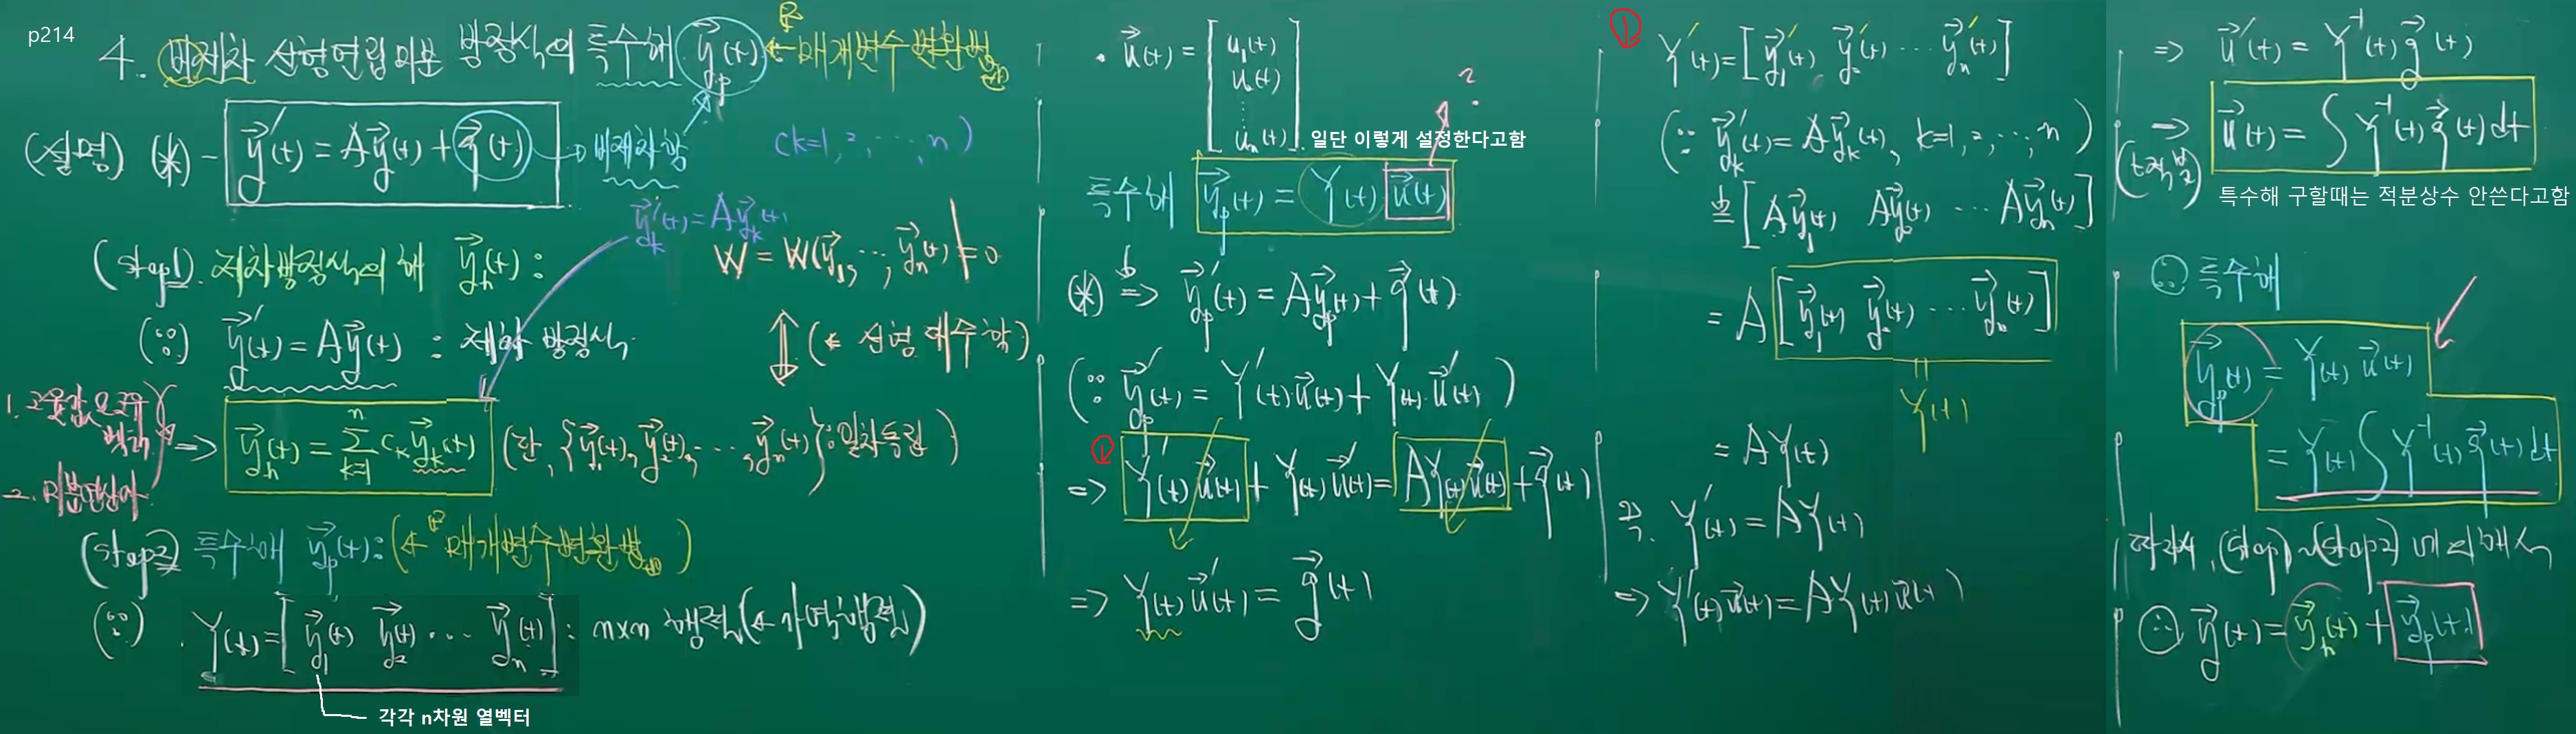 p214
4. 비제차 선형연립미분 방정식의 특수해 y⃗p(t) ← 매개변수변환법
(설명) (*) - y⃗'(t) = Ay⃗(t) + g⃗(t) → 비제차항
(k=1, 2, ..., n)
y⃗k'(t) = Ay⃗k(t)
(step1). 제차방정식의 해 y⃗h(t) :
W = W(y⃗1, ..., y⃗n(t)) ≠ 0
(∵) y⃗'(t) = Ay⃗(t) : 제차 방정식
↕ (← 선형 대수학)
1. 고유값, 고유벡터
2. 미분연산자
⇒ y⃗h(t) = Σ(k=1, n) ck y⃗k(t) (단, {y⃗1(t), y⃗2(t), ..., y⃗n(t)} : 일차독립)
(step2) 특수해 y⃗p(t) : (← 매개변수변환법)
(∵) · Y(t) = [y⃗1(t) y⃗2(t) ··· y⃗n(t)] : n×n 행렬 (← 가역행렬)
각각 n차원 열벡터
· u⃗(t) = [u1(t)
u2(t)
⋮
un(t)]
일단 이렇게 설정한다고함
?
특수해 y⃗p(t) = Y(t) u⃗(t)
(*) ⇒ y⃗p'(t) = Ay⃗p(t) + g⃗(t)
(∵ y⃗p'(t) = Y'(t)·u⃗(t) + Y(t)·u⃗'(t))
①
⇒ Y'(t) u⃗(t) + Y(t) u⃗'(t) = AY(t) u⃗(t) + g⃗(t)
⇒ Y(t) u⃗'(t) = g⃗(t)
① Y'(t) = [y⃗1'(t) y⃗2'(t) ··· y⃗n'(t)]
(∵ y⃗k'(t) = Ay⃗k(t), k=1, 2, ..., n)
= [Ay⃗1(t) Ay⃗2(t) ··· Ay⃗n(t)]
= A [y⃗1(t) y⃗2(t) ··· y⃗n(t)]
||
Y(t)
= AY(t)
즉. Y'(t) = AY(t)
⇒ Y'(t) u⃗(t) = AY(t) u⃗(t)
⇒ u⃗'(t) = Y⁻¹(t) g⃗(t)
⇒ u⃗(t) = ∫ Y⁻¹(t) g⃗(t) dt
특수해 구할때는 적분상수 안쓴다고함
∴ 특수해
y⃗p(t) = Y(t) u⃗(t)
= Y(t) ∫ Y⁻¹(t) g⃗(t) dt
따라서, (step1)~(step2)에 의해서
∴ y⃗(t) = y⃗h(t) + y⃗p(t)